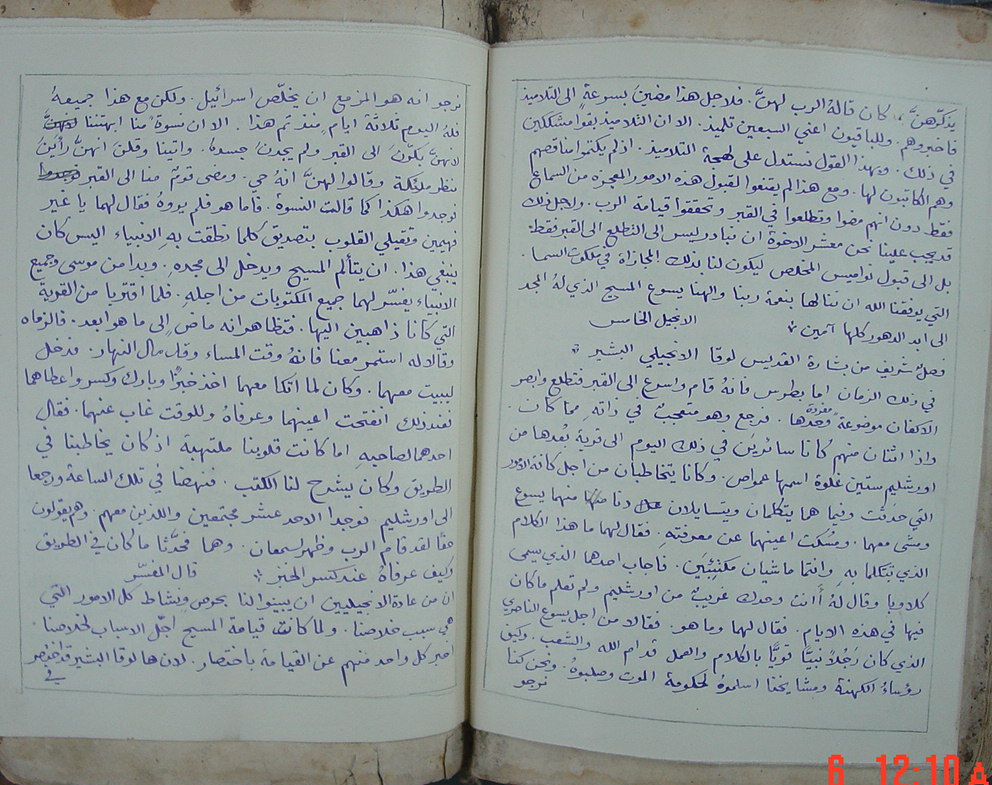 يذكّرهنَّ بما كان قالهُ الرب لهنَّ. فلاجل هذا مضينَ بسرعةٍ الى التلاميذ
فاخبروهم. وللباقيون اعني السبعين تلميذ. الا ان التلاميذ بقوا مشككين
في ذلك. وبهذا القول نستدل على لهجة التلاميذ. اذ لم يكتموا مناقصهم
وهم الكاتبون لها. ومع هذا لم يقتنعوا لقبول هذه الامور المعجزه من السماع
فقط دون انهم مضوا وتطلعوا في القبر وتحققوا قيامة الرب. ولاجل ذلك
قد يجب علينا نحن معشر الاخوة ان نبادر ليس الى التطلع الى القبر فقط.
بل الى قبول نواميس المخلص ليكون لنا بذلك المجازاة في ملكوت السما.
التي يوفقنا الله ان ننالها بنعمة ربنا والهنا يسوع المسيح الذي لهُ المجد
الى ابد الدهور كلها آمين
الانجيل الخامس
فصلٌ شريف من بشارة القديس لوقا الانجيلي البشير
في ذلك الزمان اما بطرس فانهُ قام واسرع الى القبر فتطلع وابصر
الاكفان موضوعةً مفردة وحدها. فرجع وهو متعجبٌ في ذاته مما كان.
واذا اثنان منهم كانا سائرين في ذلك اليوم الى قريةٍ بُعدها من
اورشليم ستين غلوة اسمها عمواص. وكانا يتخاطبان من اجل كافة الامور
التي حدثت وفيما هما يتكلمان ويتسايلان دنا منهما يسوع
ومشى معهما. ومُسكت اعينهما عن معرفته. فقال لهما ما هذا الكلام
الذي تتكلما بهِ وانتما ماشيان مكتئبَين. فاجاب احدهما الذي يسمى
كلاوبا وقال لهُ أأنت وحدك غريبٌ من اورشليم ولم تعلم ما كان
فيها في هذه الايام. فقال لهما وما هو. فقالا من اجل يسوع الناصري
الذي كان رَجُلاً نبيًّا قويًّا بالكلام والعمل قدام الله والشعب. وكيف
رؤساءُ الكهنة ومشايخنا اسلموهُ لحكومة الموت وصلبوهُ. ونحن كنا
نرجو
نرجو انه هو المزمع ان يخلّص اسرائيل. ولكن مع هذا جميعهُ
فلهُ اليوم ثلاثة ايام منذ تم هذا. الا ان نسوةً منا ابهتننا
لانهنَّ بكّرنَ الى القبر ولم يجدنَ جسدهُ. واتينا وقلنَ انهنَّ رأينَ
منظر ملئكة وقالوا لهنَّ انهُ حي. ومضى قومٌ منا الى القبر
فوجدوا هكذا كما قالت النسوة. فاما هو فلم يروهُ فقال لهما يا غير
فهيمين وثقيلي القلوب بتصديق كلما نطقت بهِ الانبياء اليس كان
ينبغي هذا. ان يتألم المسيح ويدخل الى مجده. وبدا من موسى وجميع
الانبياء يفسّر لهما جميع المكتوبات من اجله. فلما اقتربا من القرية
التي كانا ذاهبين اليها. فتظاهر انه ماضٍ إلى ما هو ابعد. فالزماه
وقالا له استمر معنا فانهُ وقت المساء وقد مال النهار. فدخل
ليبيت معهما. وكان لما اتكا معهما اخذ خبزًا وبارك وكسر واعطاهما
فعند ذلك انفتحت اعينهما وعرفاهُ وللوقت غاب عنهما. فقال
احدهما لصاحبهِ اما كانت قلوبنا ملتهبة اذ كان يخاطبنا في
الطريق وكان يشرح لنا الكتب. فنهضا في تلك الساعة ورجعا
الى اورشليم فوجدا الاحد عشر مجتمعين والذين معهم وهم يقولون
حقًّا لقد قام الرب وظهر لسمعان. وهما فحدَّثا ما كان في الطريق
وكيف عرفاهُ عند كسر الخبز
قال المفسّر
ان من عادة الانجيليين ان يبينوا لنا بحرص ونشاط كل الامور التي
هي سبب خلاصنا. ولما كانت قيامة المسيح اجّل الاسباب لخلاصنا
اخبر كل واحد منهم عن القيامة باختصار. لان ها لوقا البشير قد اختصر
في
6 12:10